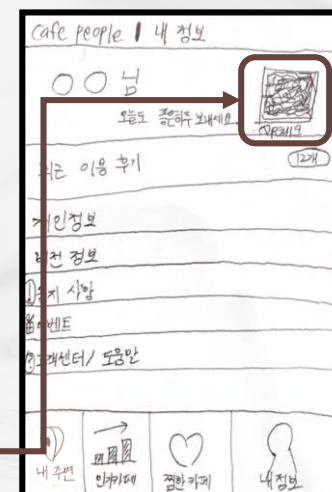 cafe people | 내 정보
○○ 님
오늘도 좋은하루 보내세요
QR체크
최근 이용 후기
12개
개인정보
버전 정보
공지 사항
이벤트
고객센터 / 도움말
내 주변
인기카페
찜한 카페
내 정보